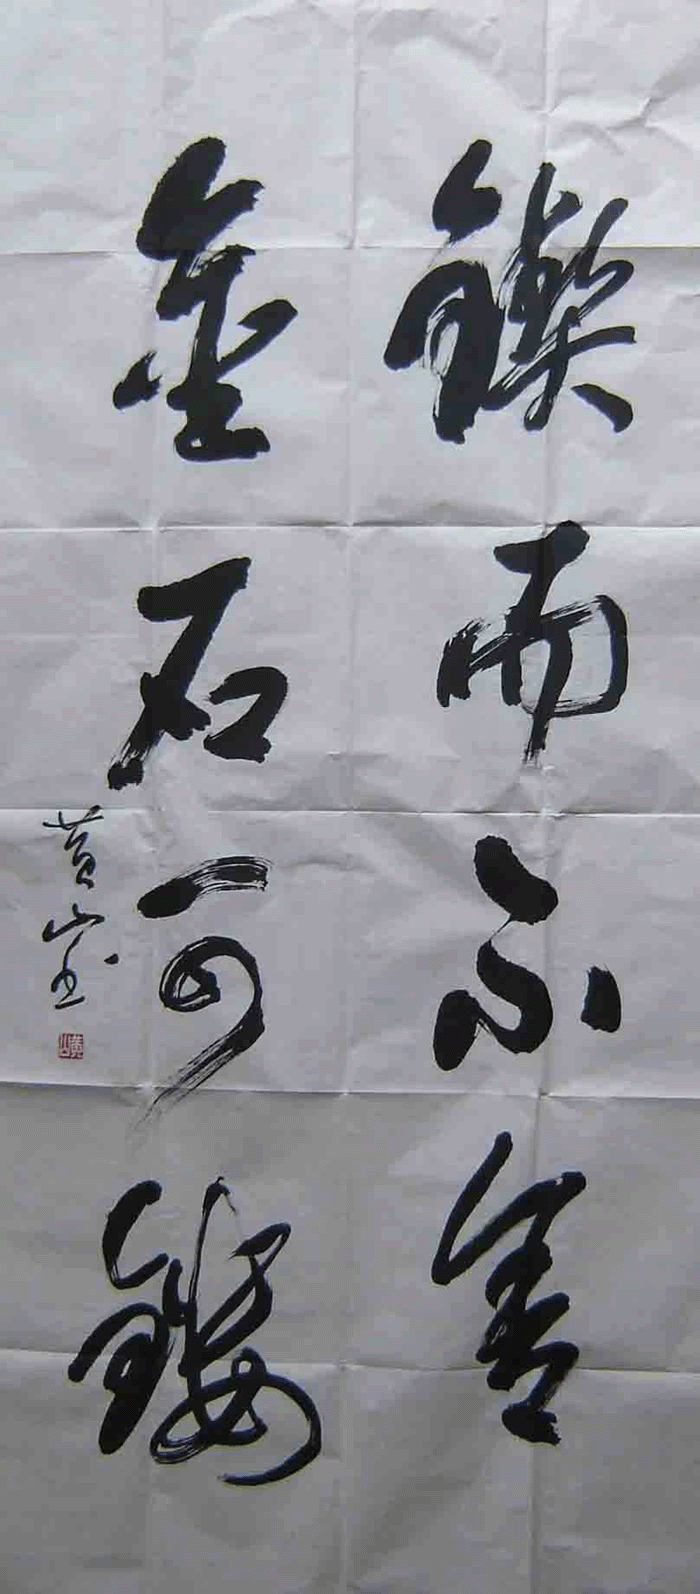 鍥而不舍
金石可鏤
黄山